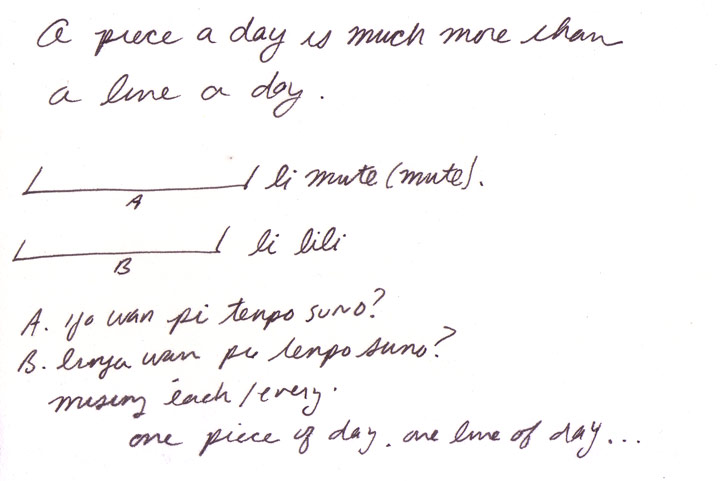 A piece a day is much more than
a line a day.
li mute (mute).
A
li lili
B
A. ijo wan pi tenpo suno?
B. linja wan pi tenpo suno?
missing each/every.
one piece of day. one line of day...